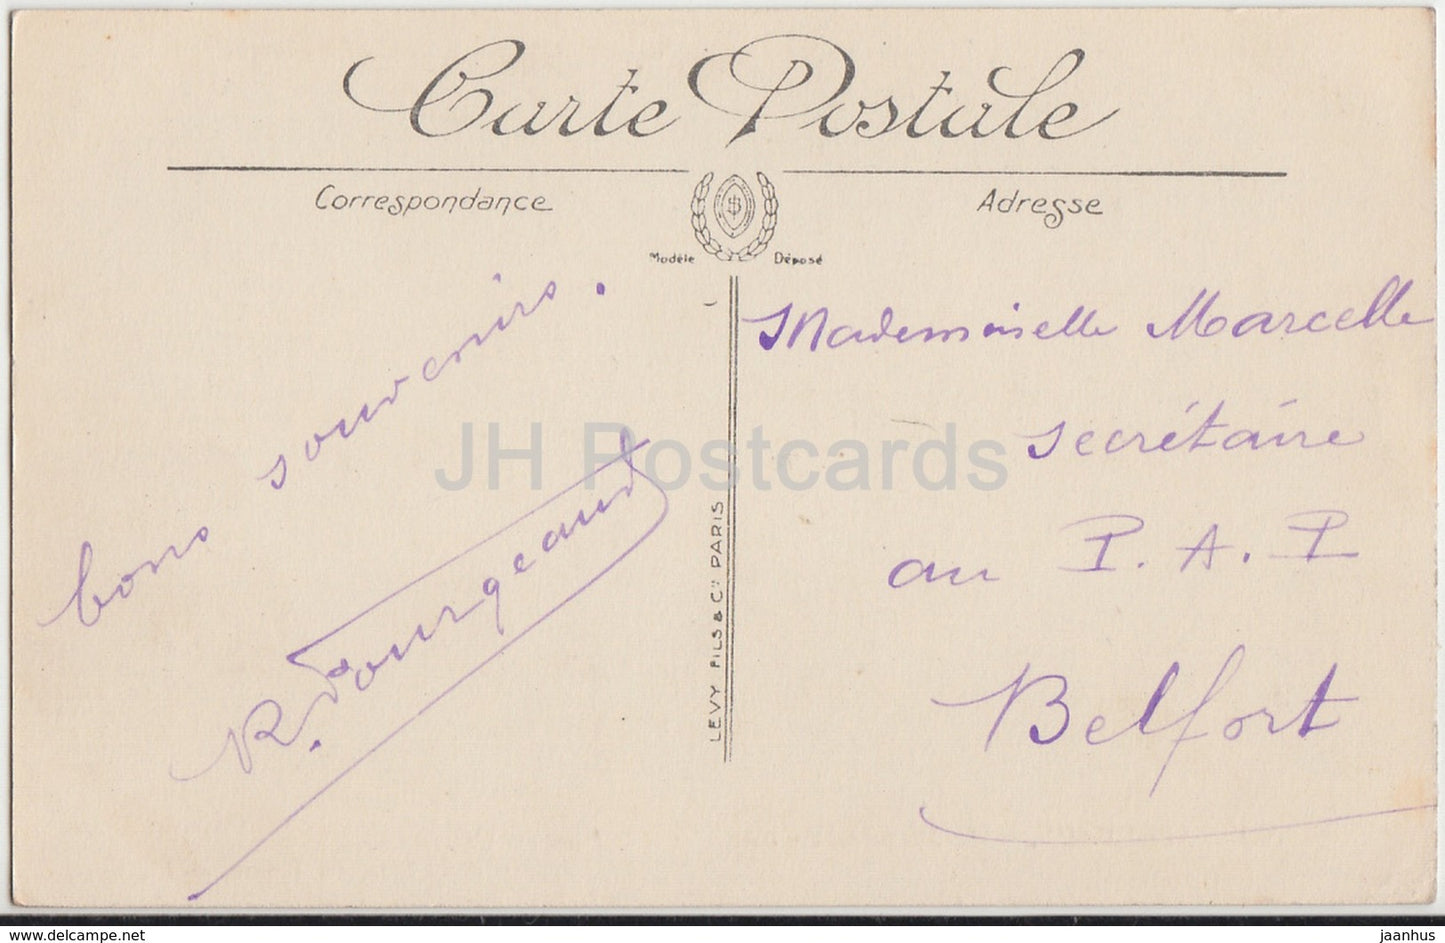 Carte Postale
Correspondance
Adresse
$
Modèle Déposé
bons souvenirs.
R. Bourgeaud
Mademoiselle Marcelle
secrétaire
au P.A.P
Belfort
LEVY FILS & Cie PARIS
JH Postcards
www.delcampe.net
jaanhus